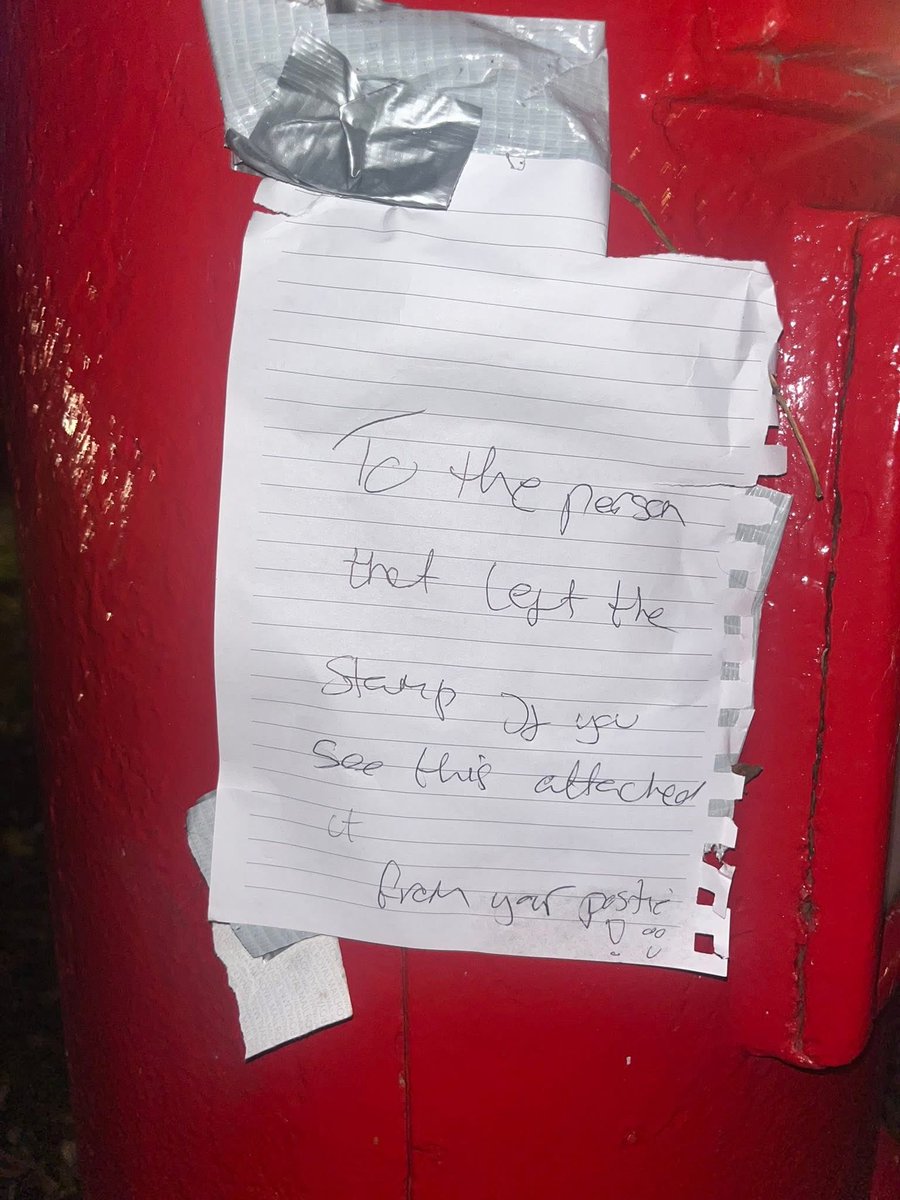 To the person
that left the
Stamp If you
see this attached
it
from your postie
!